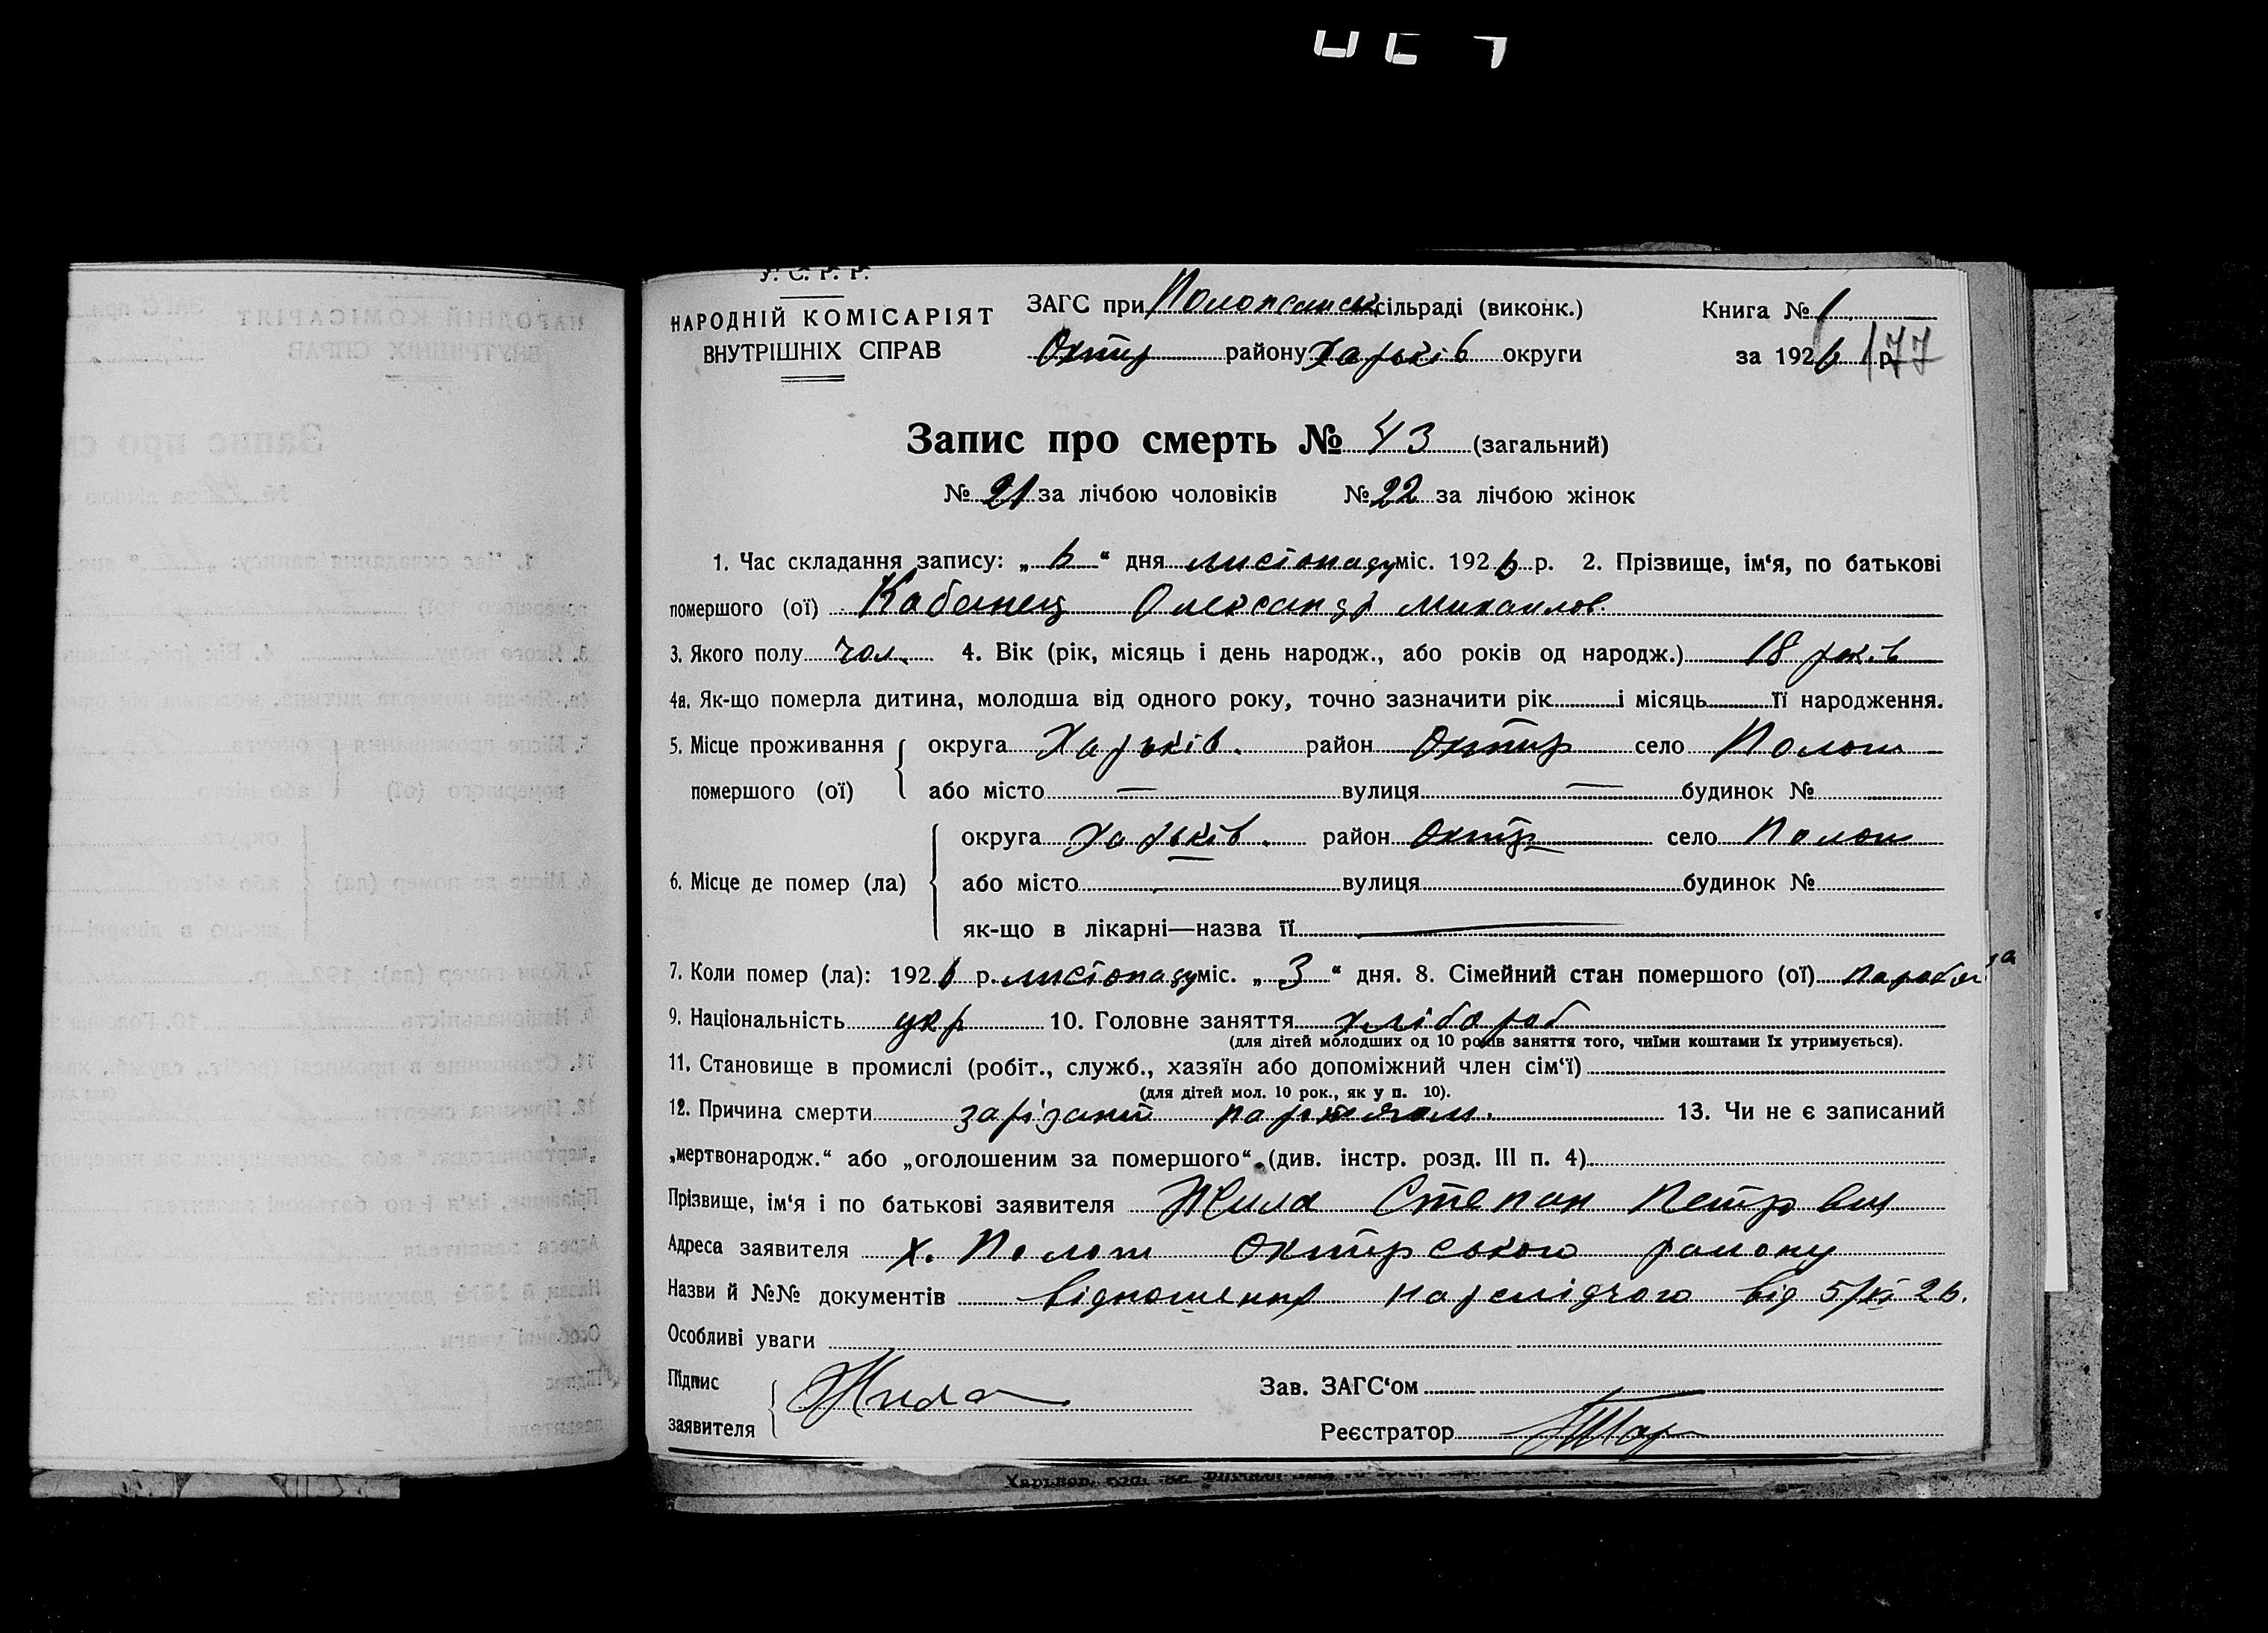 У. С. Р. Р.
НАРОДНІЙ КОМІСАРІЯТ
ВНУТРІШНІХ СПРАВ
ЗАГС при сільраді (виконк.)
Охтир району Харьків округи
Книга № 1
за 1926 р. 177
Запис про смерть № 43 (загальний)
№ 21 за лічбою чоловіків № 22 за лічбою жінок
1. Час складання запису: „ 6 “ дня листопаду міс. 1926 р. 2. Прізвище, ім‘я, по батькові
помершого (ої) Кабанец Олександр Михаилов.
3. Якого полу чол. 4. Вік (рік, місяць і день народж., або років од народж.) 18 років
4а. Як-що померла дитина, молодша від одного року, точно зазначити рік і місяць її народження.
5. Місце проживання помершого (ої) округа Харьків. район Охтир село Полот
або місто — вулиця — будинок №
6. Місце де помер (ла) округа Харьків. район Охтир село Полот
або місто вулиця будинок №
як-що в лікарні—назва її
7. Коли помер (ла): 1926 р. листопаду міс. „ 3 “ дня. 8. Сімейний стан помершого (ої)
9. Національність укр 10. Головне заняття хлібороб
(для дітей молодших од 10 років заняття того, чиїми коштами їх утримується).
11. Становище в промислі (робіт., служб., хазяїн або допоміжний член сім‘ї)
(для дітей мол. 10 рок., як у п. 10).
12. Причина смерти зарізаний 13. Чи не є записаний
„мертвонародж.“ або „оголошеним за помершого“ (див. інстр. розд. III п. 4)
Прізвище, ім‘я і по батькові заявителя Жила Степан Петрович
Адреса заявителя х. Полот Охтирського району
Назви й №№ документів відношення нарслідчого від 5/XI 26.
Особливі уваги
Підпис заявителя Жила
Зав. ЗАГС‘ом
Реєстратор